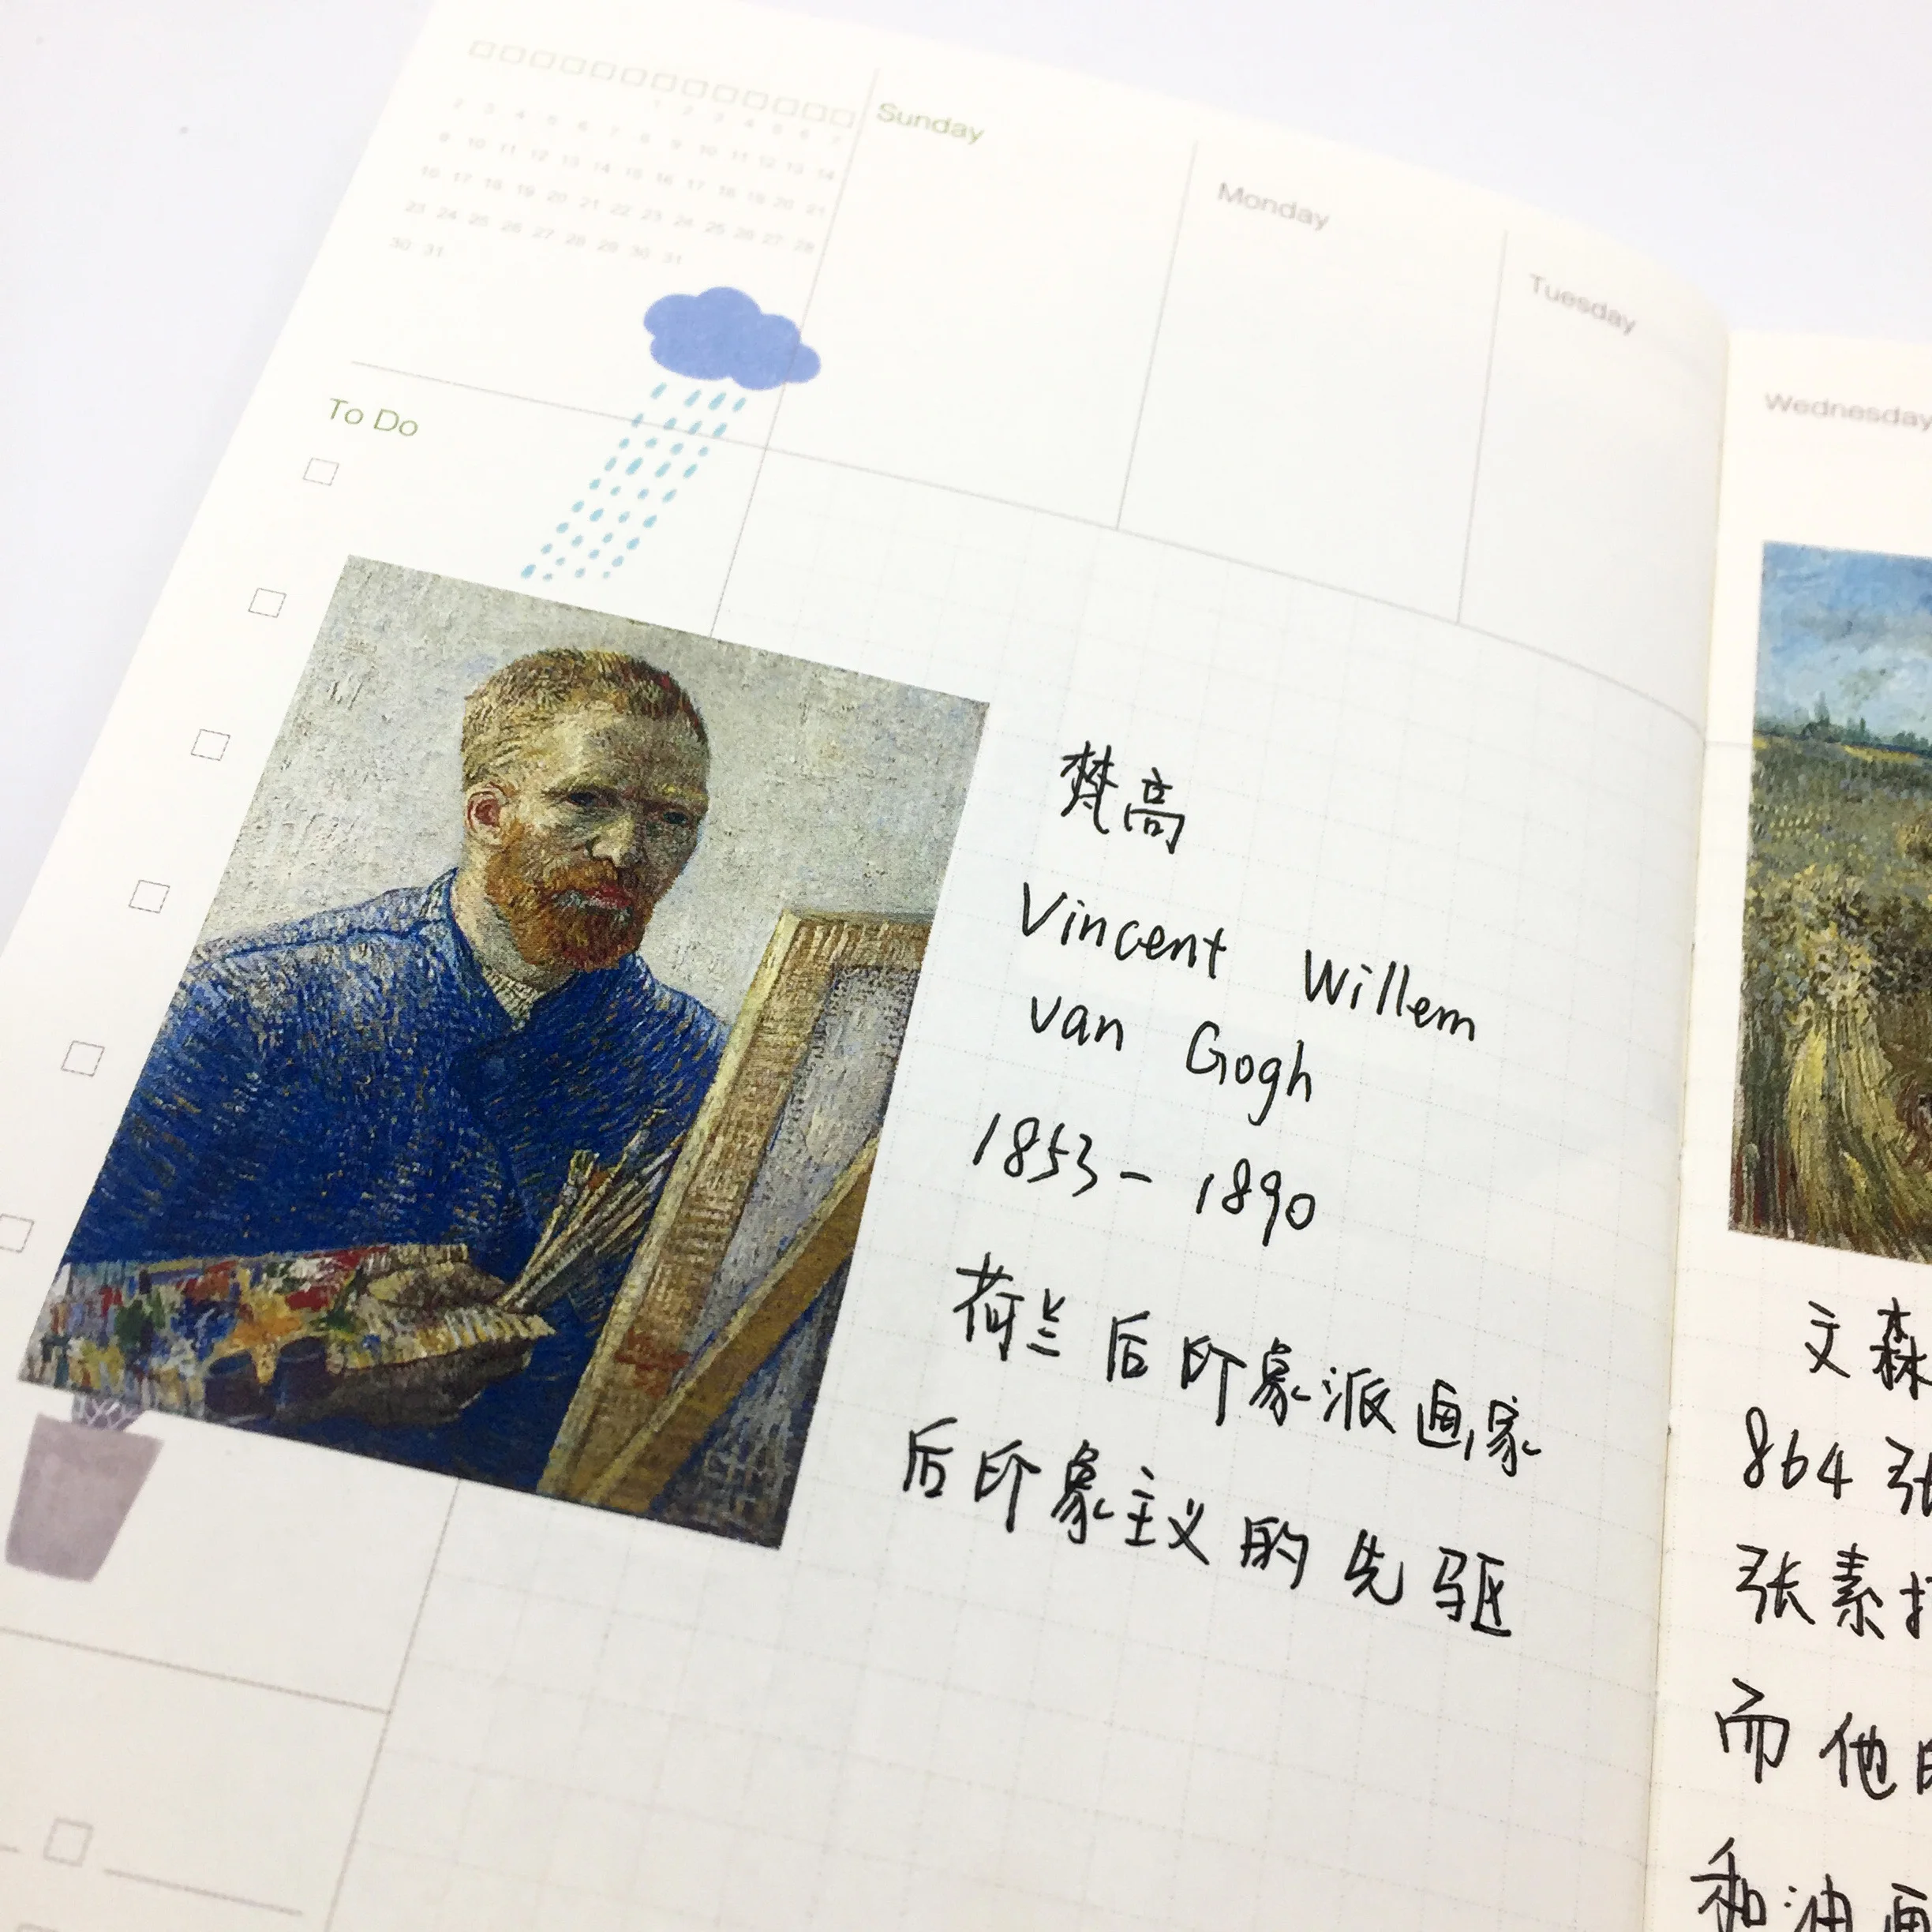 Sunday
Monday
Tuesday
Wednesday
1 2 3 4 5 6 7
2 3 4 5 6 7 8 9 10 11 12 13 14
9 10 11 12 13 14 15 16 17 18 19 20 21
16 17 18 19 20 21 22 23 24 25 26 27 28
23 24 25 26 27 28 29 30 31
30 31
To Do
梵高
Vincent Willem
van Gogh
1853-1890
荷兰后印象派画家
后印象主义的先驱
文森
864张
张素
而他
和油画